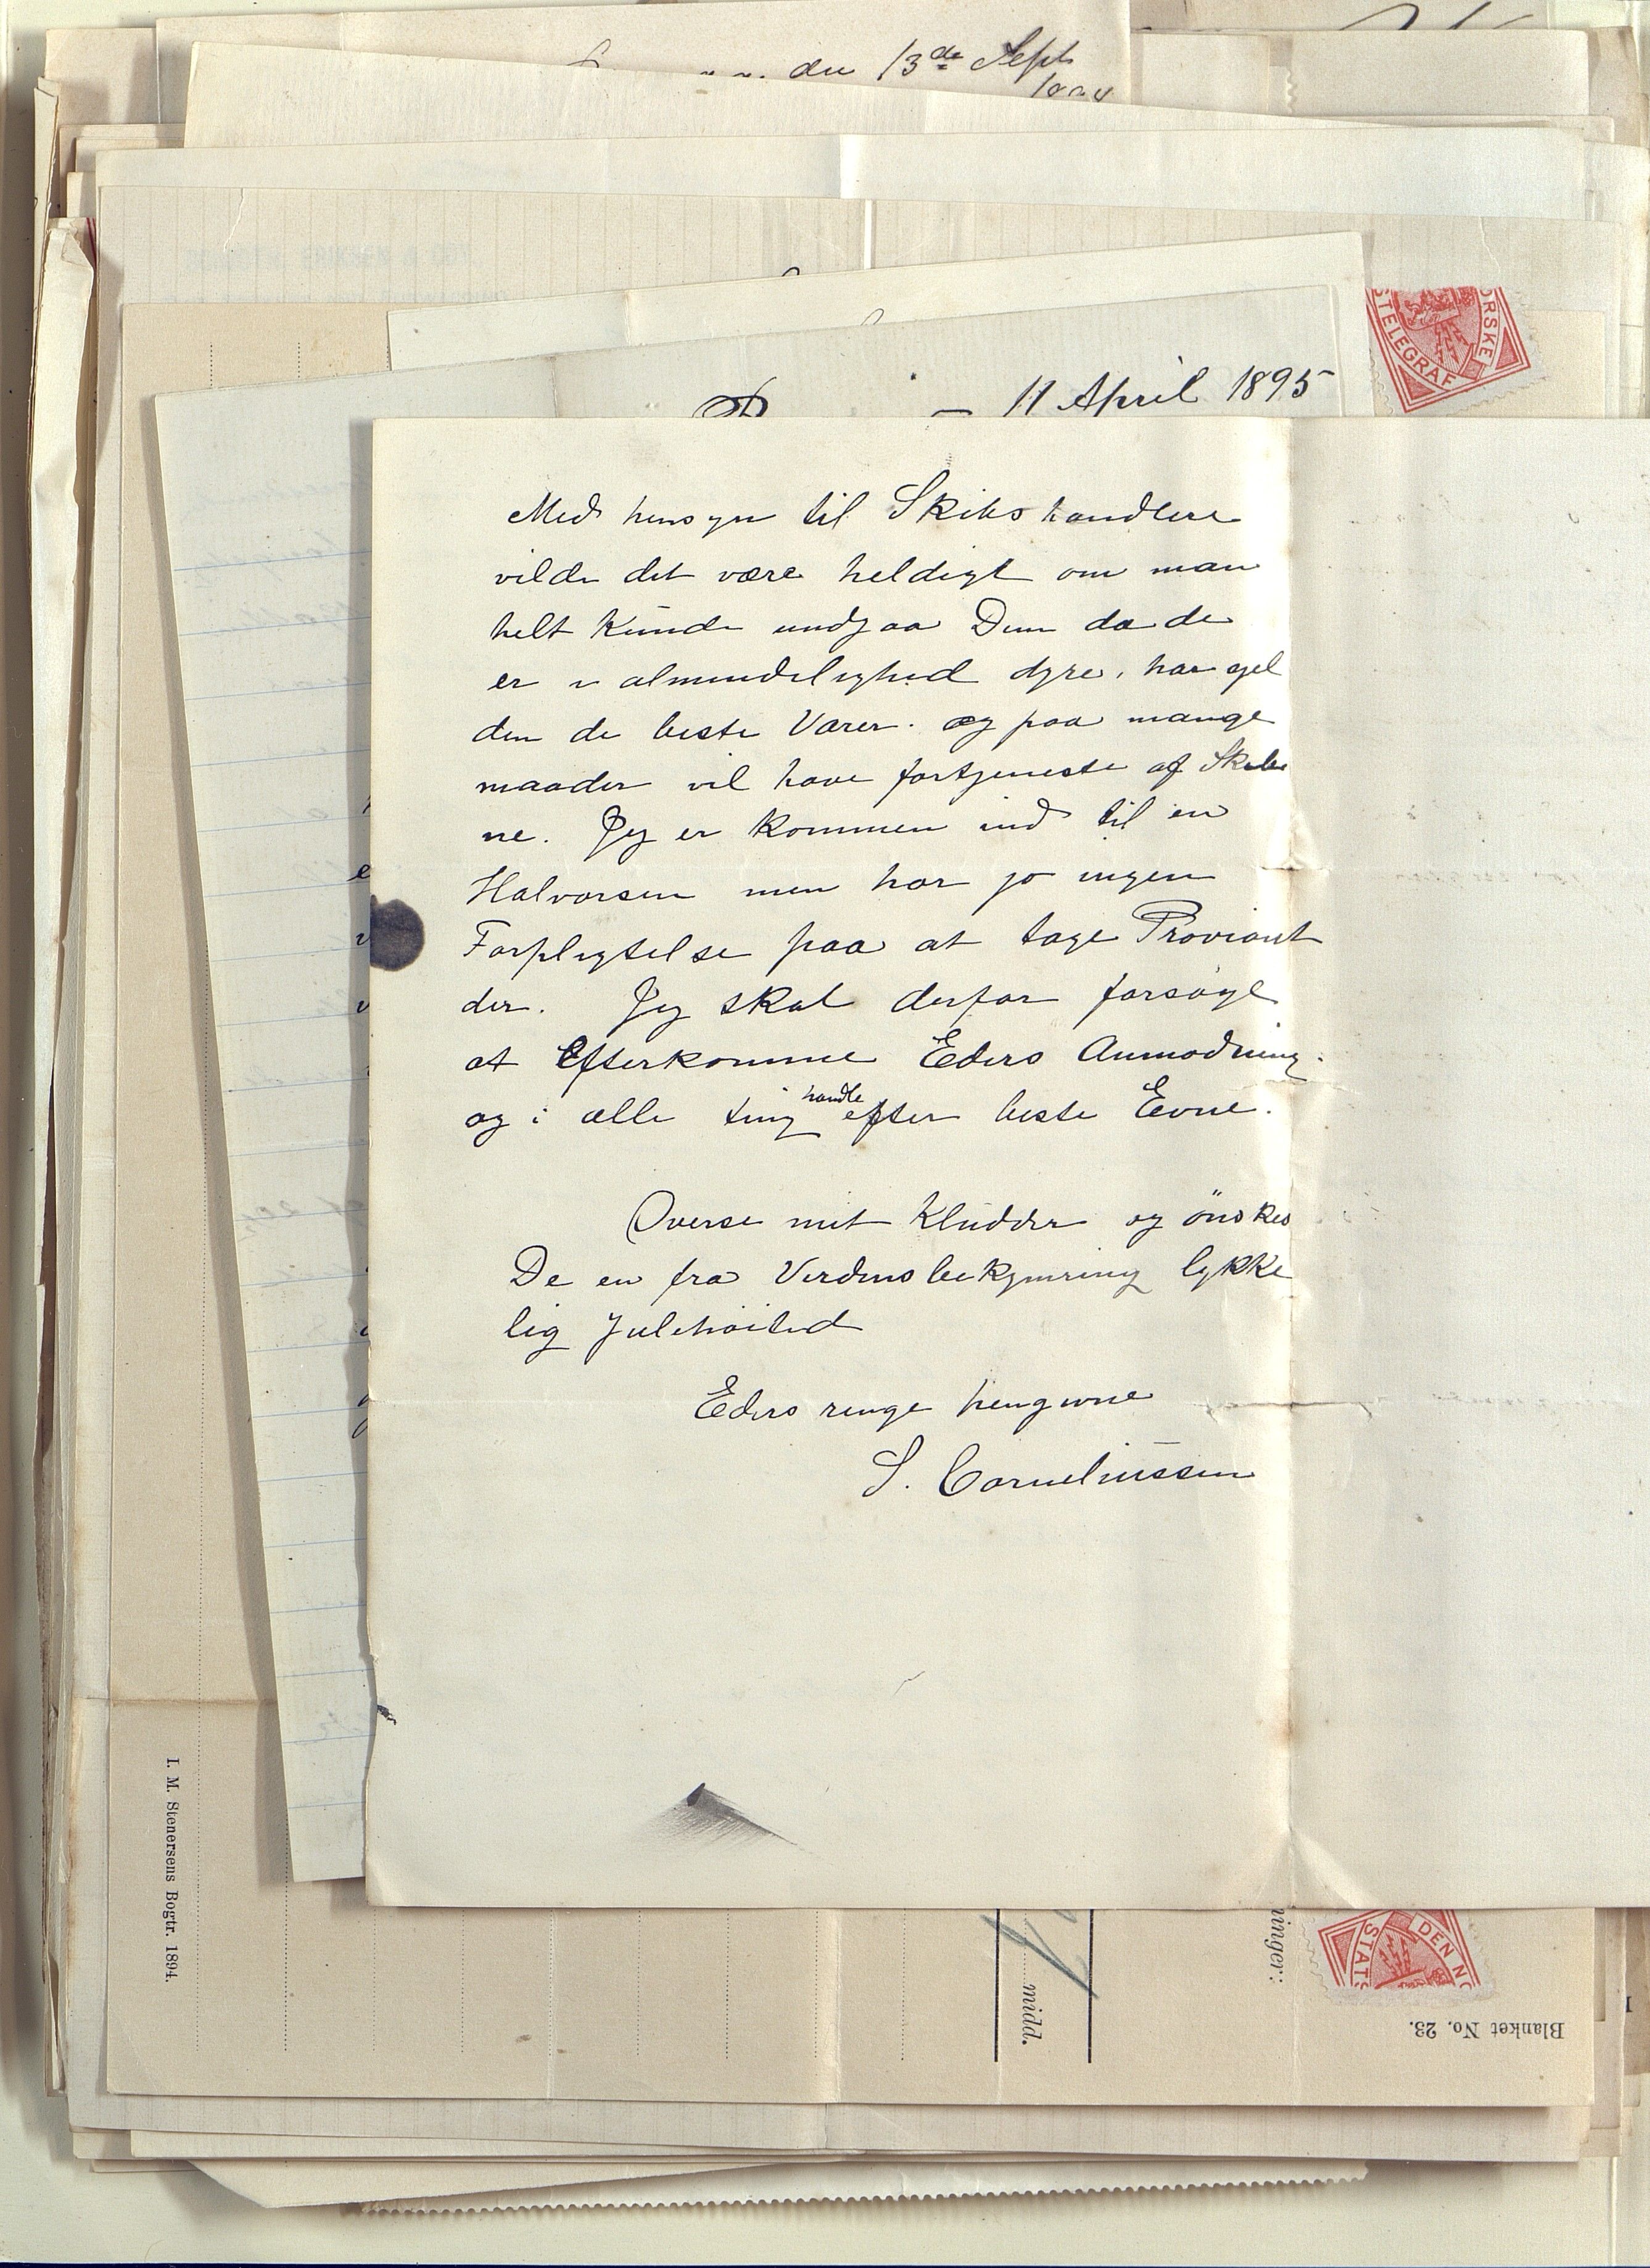 du 13de Sept
11 April 1895
ORSKE
STELEGRAF
Med hensyn til Skibshandlere
vilde det være heldigt om man
helt kunde undgaa Dem da de
er i almindelighed dyre, har sjel
den de beste Varer. og paa mange
maader vil have fortjeneste af Skibe
ne. Jeg er kommen ind til en
Halvorsen men har jo ingen
Forpligtelse paa at tage Proviant
der. Jeg skal derfor forsøge
at Efterkomme Eders Anmodning.
og i alle ting handle efter beste Evne.
Overse mit Kludder og önskes
De en fra Verdensbekymring lykke
lig Julehöitid
Eders ringe hengivne
S. Corneliussen
I. M. Stenersens Bogtr. 1894.
midd.
ninger:
DEN NO
STATS
Blanket No. 23.